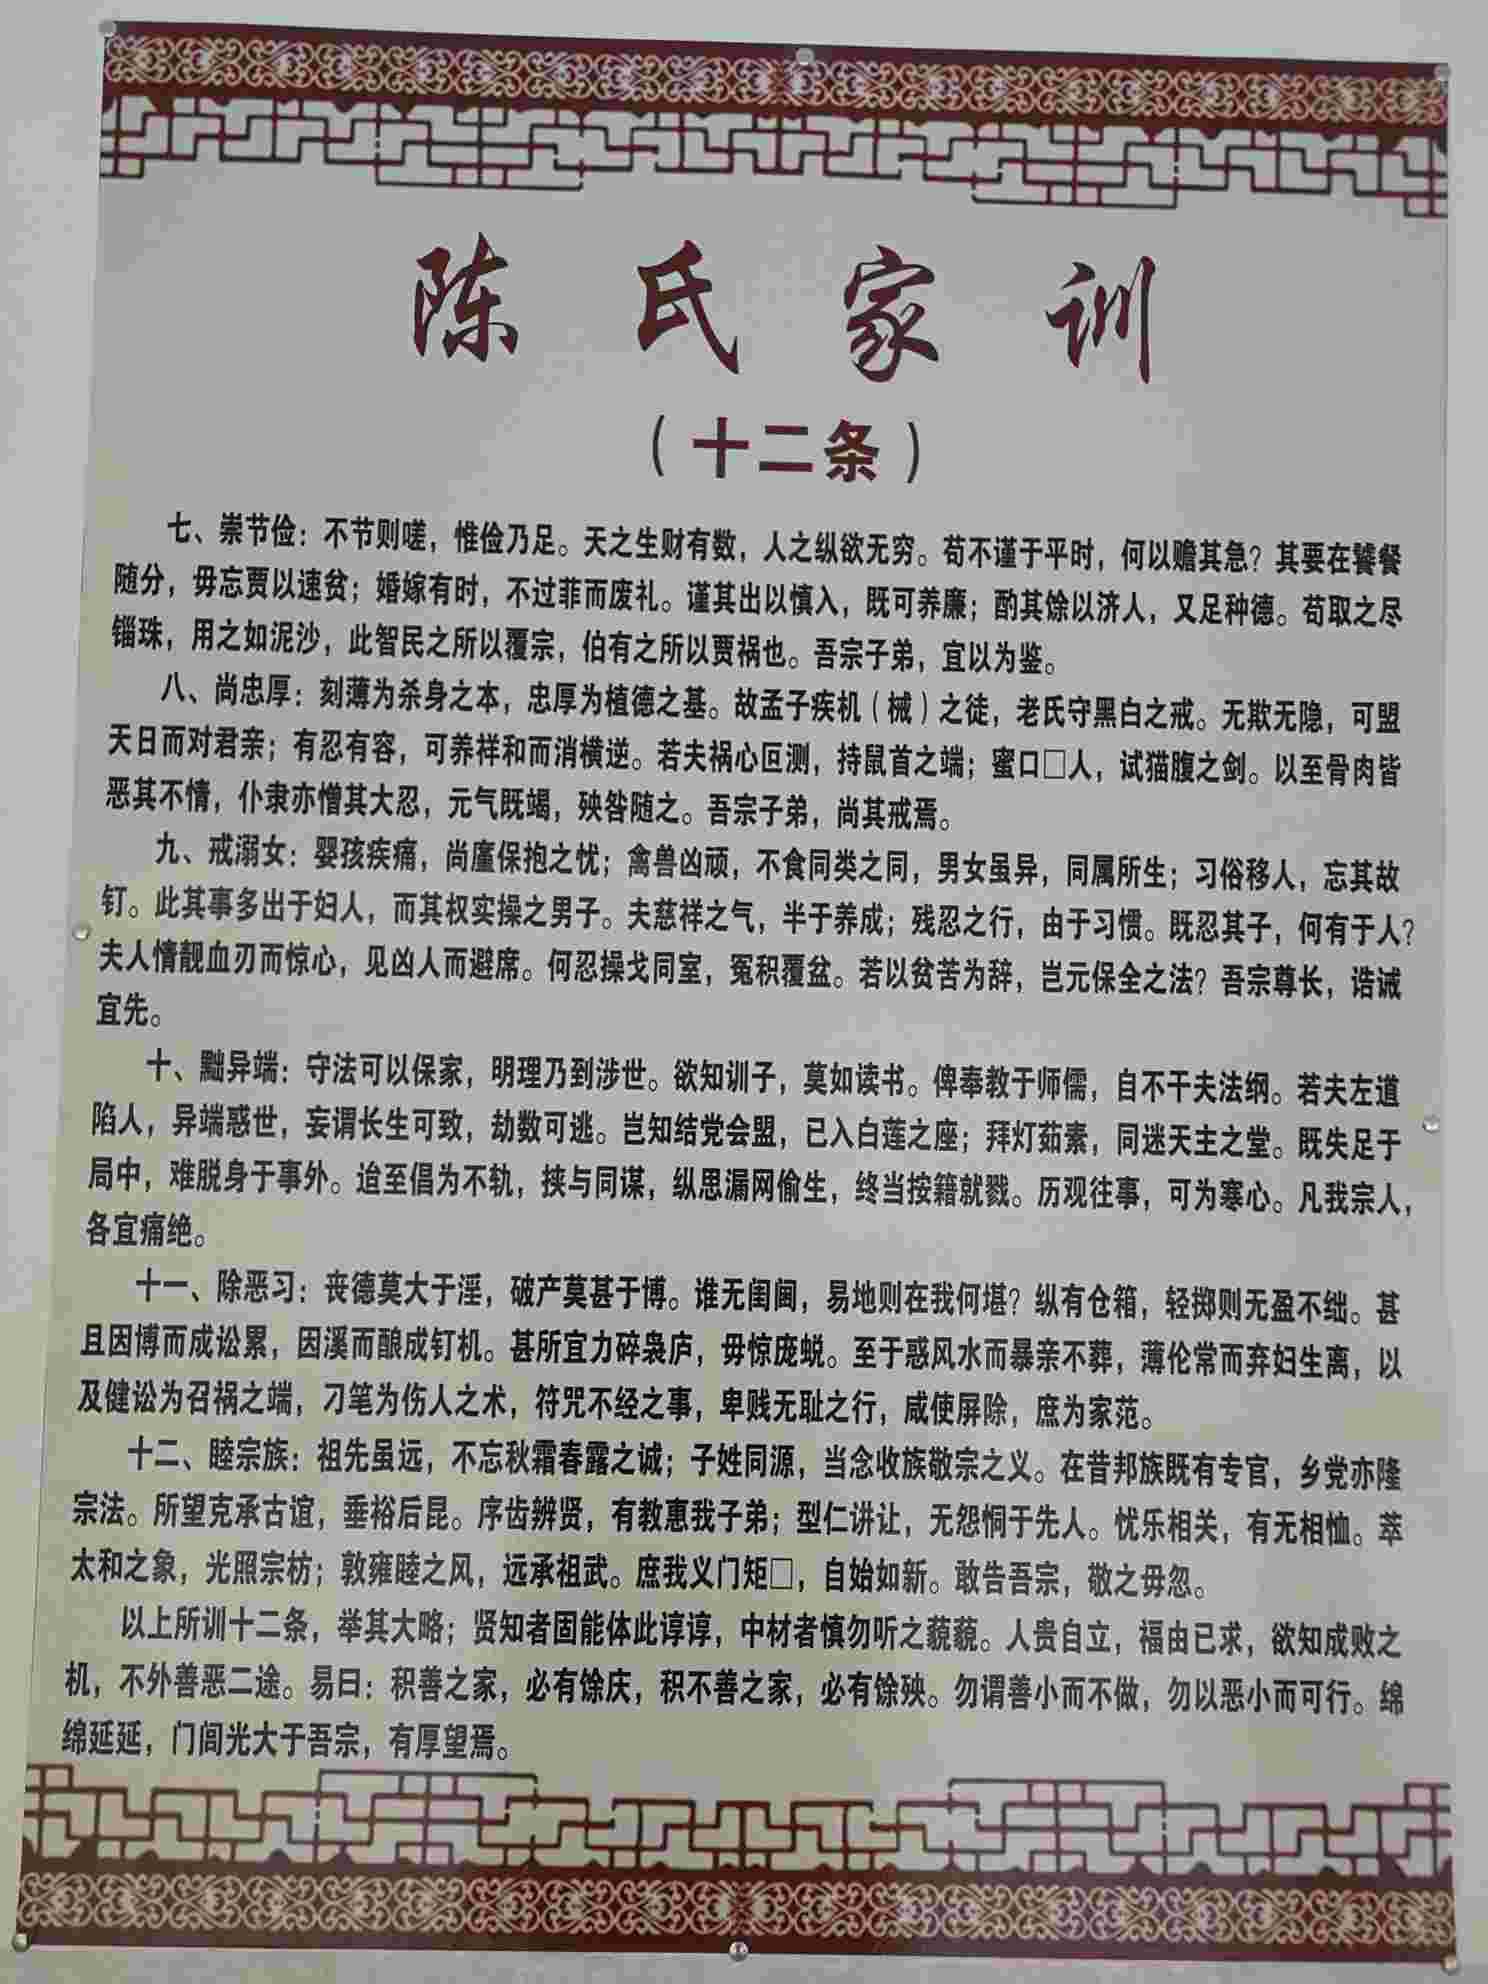 陈氏家训
（十二条）
七、崇节俭：不节则嗟，惟俭乃足。天之生财有数，人之纵欲无穷。苟不谨于平时，何以赡其急？其要在饕餐
随分，毋忘贾以速贫；婚嫁有时，不过菲而废礼。谨其出以慎入，既可养廉；酌其馀以济人，又足种德。苟取之尽
锱珠，用之如泥沙，此智民之所以覆宗，伯有之所以贾祸也。吾宗子弟，宜以为鉴。
八、尚忠厚：刻薄为杀身之本，忠厚为植德之基。故孟子疾机（械）之徒，老氏守黑白之戒。无欺无隐，可盟
天日而对君亲；有忍有容，可养祥和而消横逆。若夫祸心叵测，持鼠首之端；蜜口□人，试猫腹之剑。以至骨肉皆
恶其不情，仆隶亦憎其大忍，元气既竭，殃咎随之。吾宗子弟，尚其戒焉。
九、戒溺女：婴孩疾痛，尚廑保抱之忧；禽兽凶顽，不食同类之同，男女虽异，同属所生；习俗移人，忘其故
钉。此其事多出于妇人，而其权实操之男子。夫慈祥之气，半于养成；残忍之行，由于习惯。既忍其子，何有于人？
夫人情靓血刃而惊心，见凶人而避席。何忍操戈同室，冤积覆盆。若以贫苦为辞，岂元保全之法？吾宗尊长，诰诫
宜先。
十、黜异端：守法可以保家，明理乃到涉世。欲知训子，莫如读书。俾奉教于师儒，自不干夫法纲。若夫左道
陷人，异端惑世，妄谓长生可致，劫数可逃。岂知结党会盟，已入白莲之座；拜灯茹素，同迷天主之堂。既失足于
局中，难脱身于事外。迨至倡为不轨，挟与同谋，纵思漏网偷生，终当按籍就戮。历观往事，可为寒心。凡我宗人，
各宜痛绝。
十一、除恶习：丧德莫大于淫，破产莫甚于博。谁无闺阃，易地则在我何堪？纵有仓箱，轻掷则无盈不绌。甚
且因博而成讼累，因溪而酿成钉机。甚所宜力碎枭庐，毋惊庞蜕。至于惑风水而暴亲不葬，薄伦常而弃妇生离，以
及健讼为召祸之端，刁笔为伤人之术，符咒不经之事，卑贱无耻之行，咸使屏除，庶为家范。
十二、睦宗族：祖先虽远，不忘秋霜春露之诚；子姓同源，当念收族敬宗之义。在昔邦族既有专官，乡党亦隆
宗法。所望克承古谊，垂裕后昆。序齿辨贤，有教惠我子弟；型仁讲让，无怨恫于先人。忧乐相关，有无相恤。萃
太和之象，光照宗枋；敦雍睦之风，远承祖武。庶我义门矩□，自始如新。敢告吾宗，敬之毋忽。
以上所训十二条，举其大略；贤知者固能体此谆谆，中材者慎勿听之藐藐。人贵自立，福由已求，欲知成败之
机，不外善恶二途。易曰：积善之家，必有馀庆，积不善之家，必有馀殃。勿谓善小而不做，勿以恶小而可行。绵
绵延延，门闾光大于吾宗，有厚望焉。